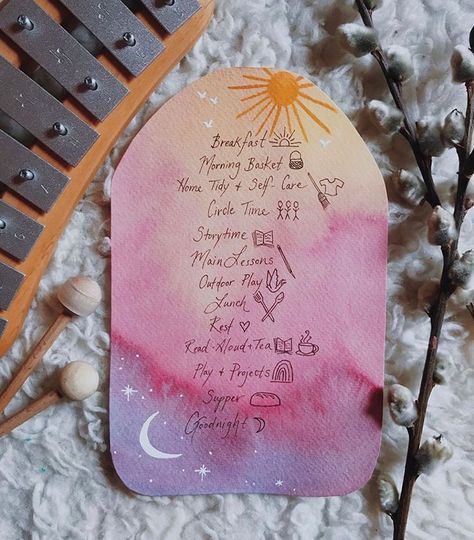 Breakfast
Morning Basket
Home Tidy + Self-Care
Circle Time
Storytime
Main Lessons
Outdoor Play
Lunch
Rest
Read-Aloud + Tea
Play + Projects
Supper
Goodnight